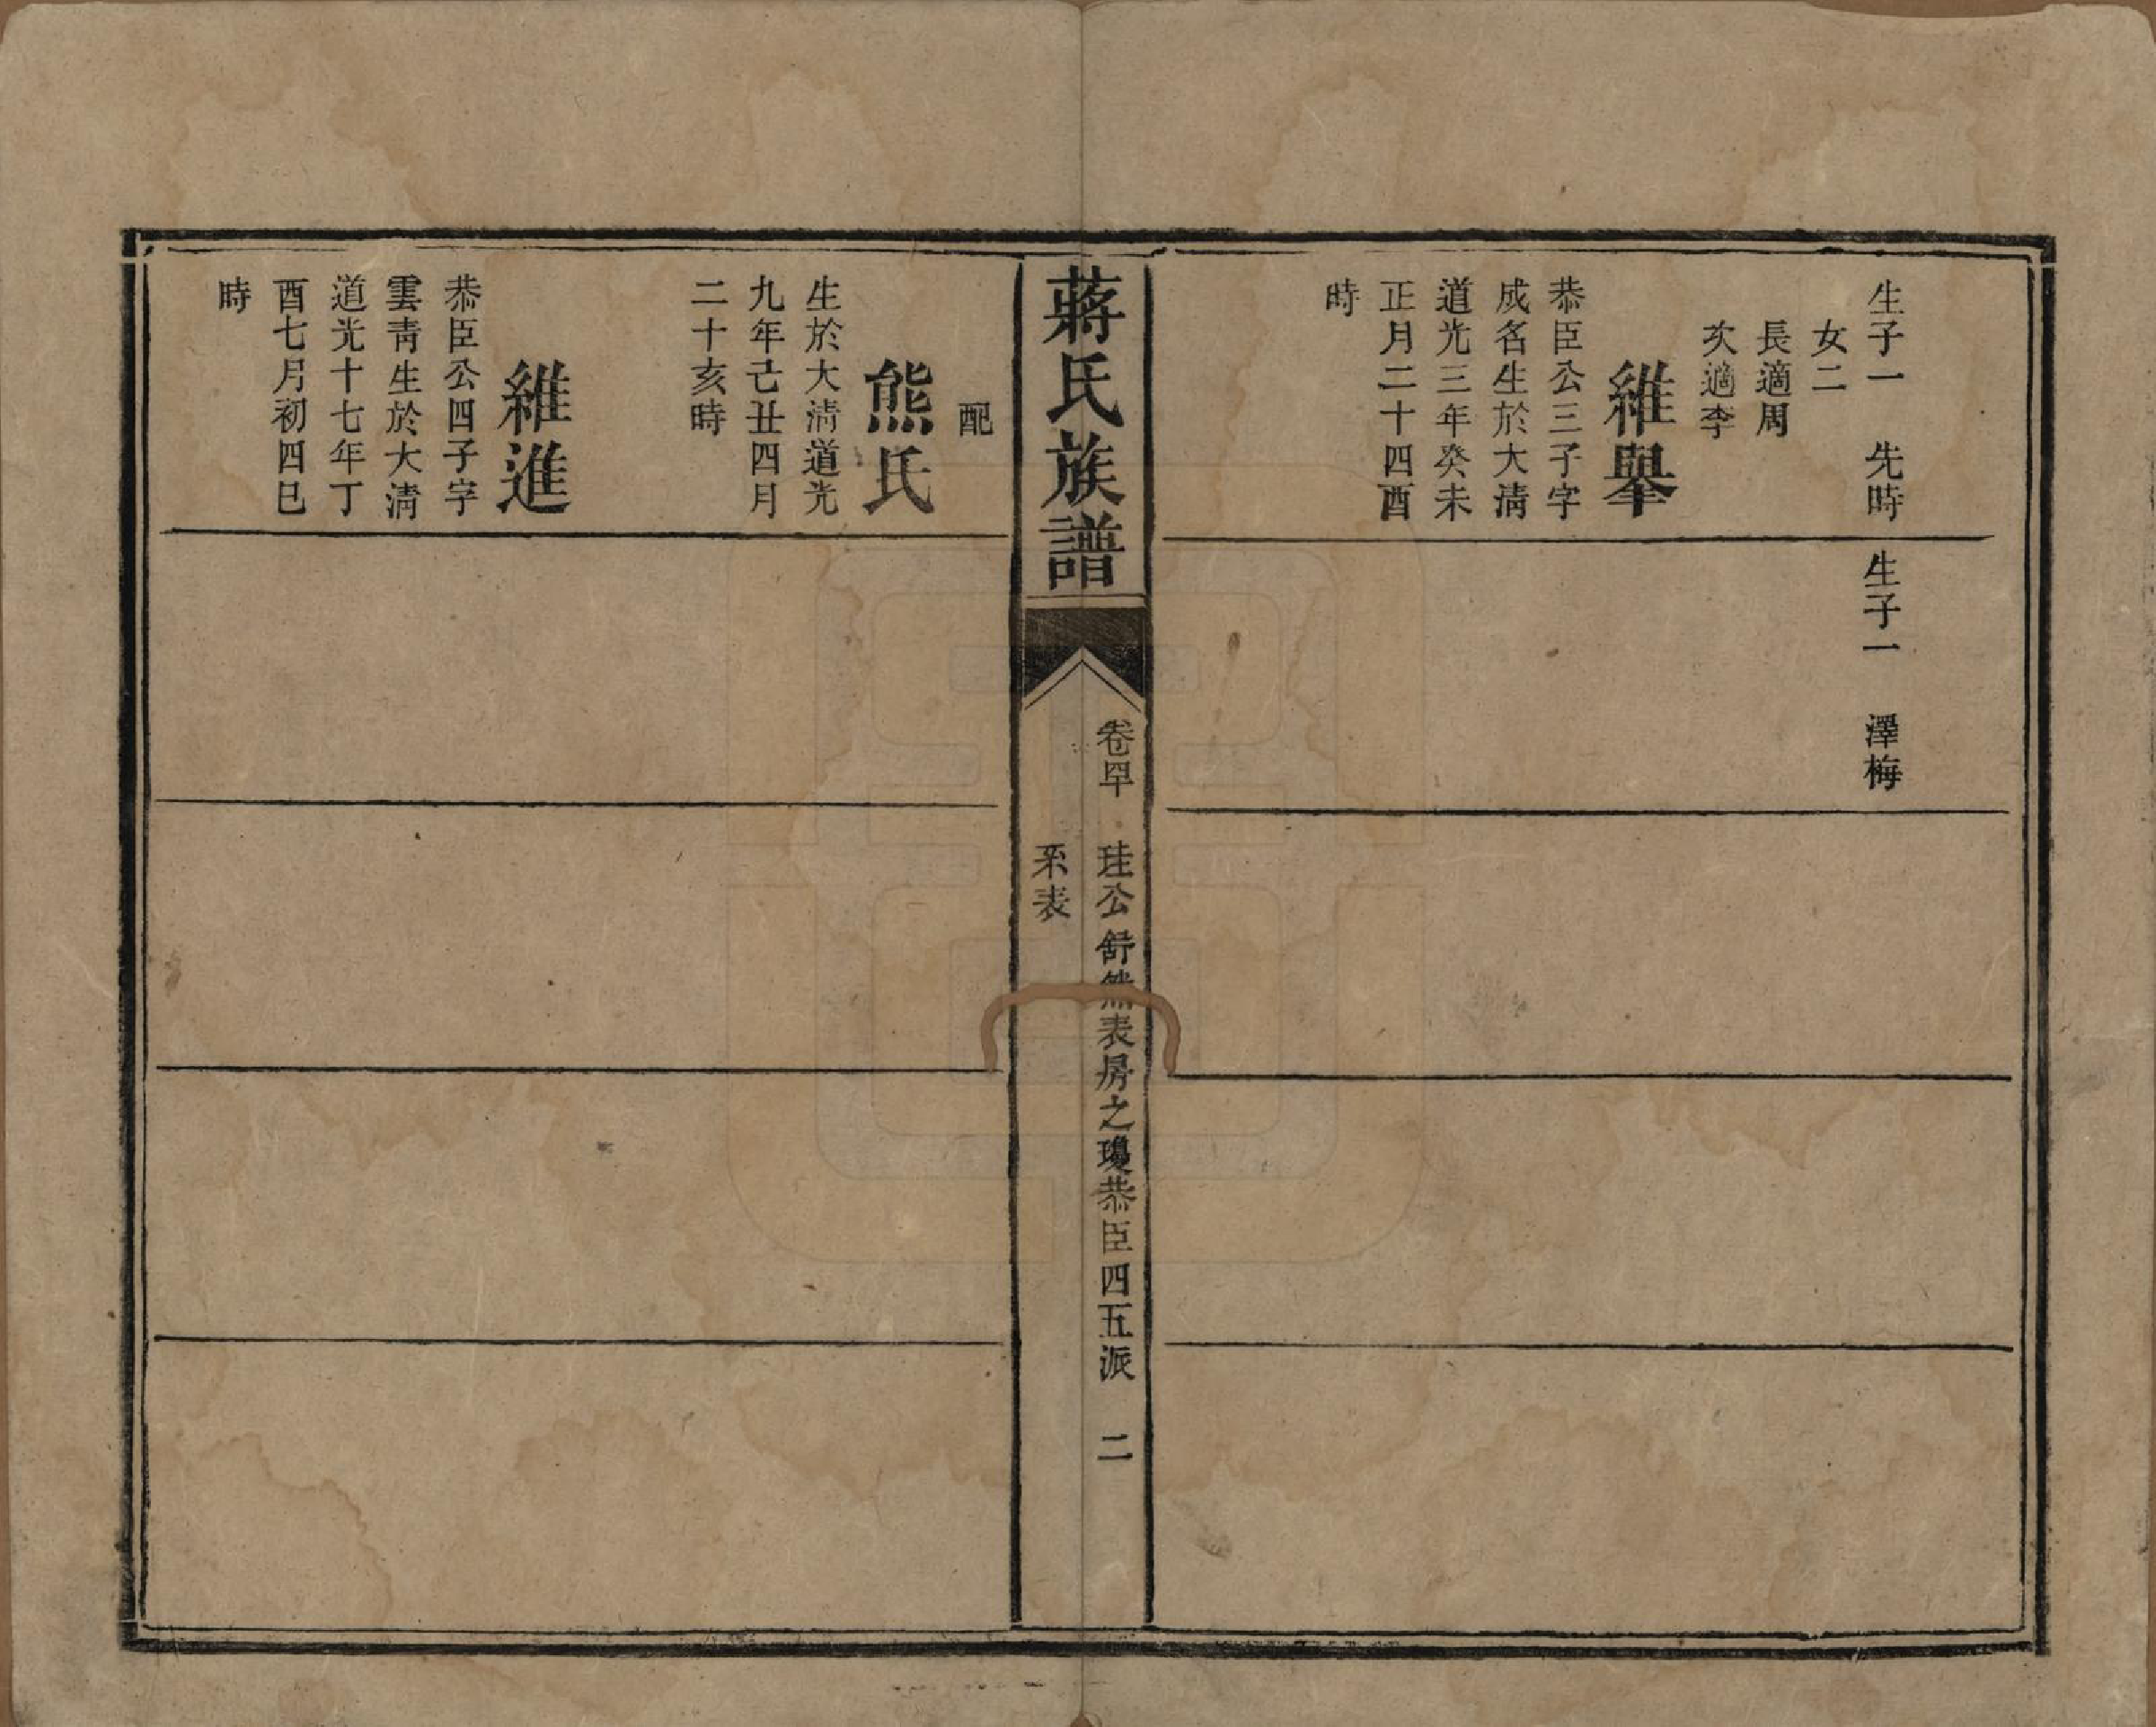 生子一　先時
女二
長適周
次適李
維舉
恭臣公三子字
成名生於大清
道光三年癸未
正月二十四酉
時
生子一　澤梅
蔣氏族譜
卷四十　珪公舒然表房之瓊恭臣四五派　二
系表
配
熊氏
生於大清道光
九年己丑四月
二十亥時
維進
恭臣公四子字
雲青生於大清
道光十七年丁
酉七月初四巳
時